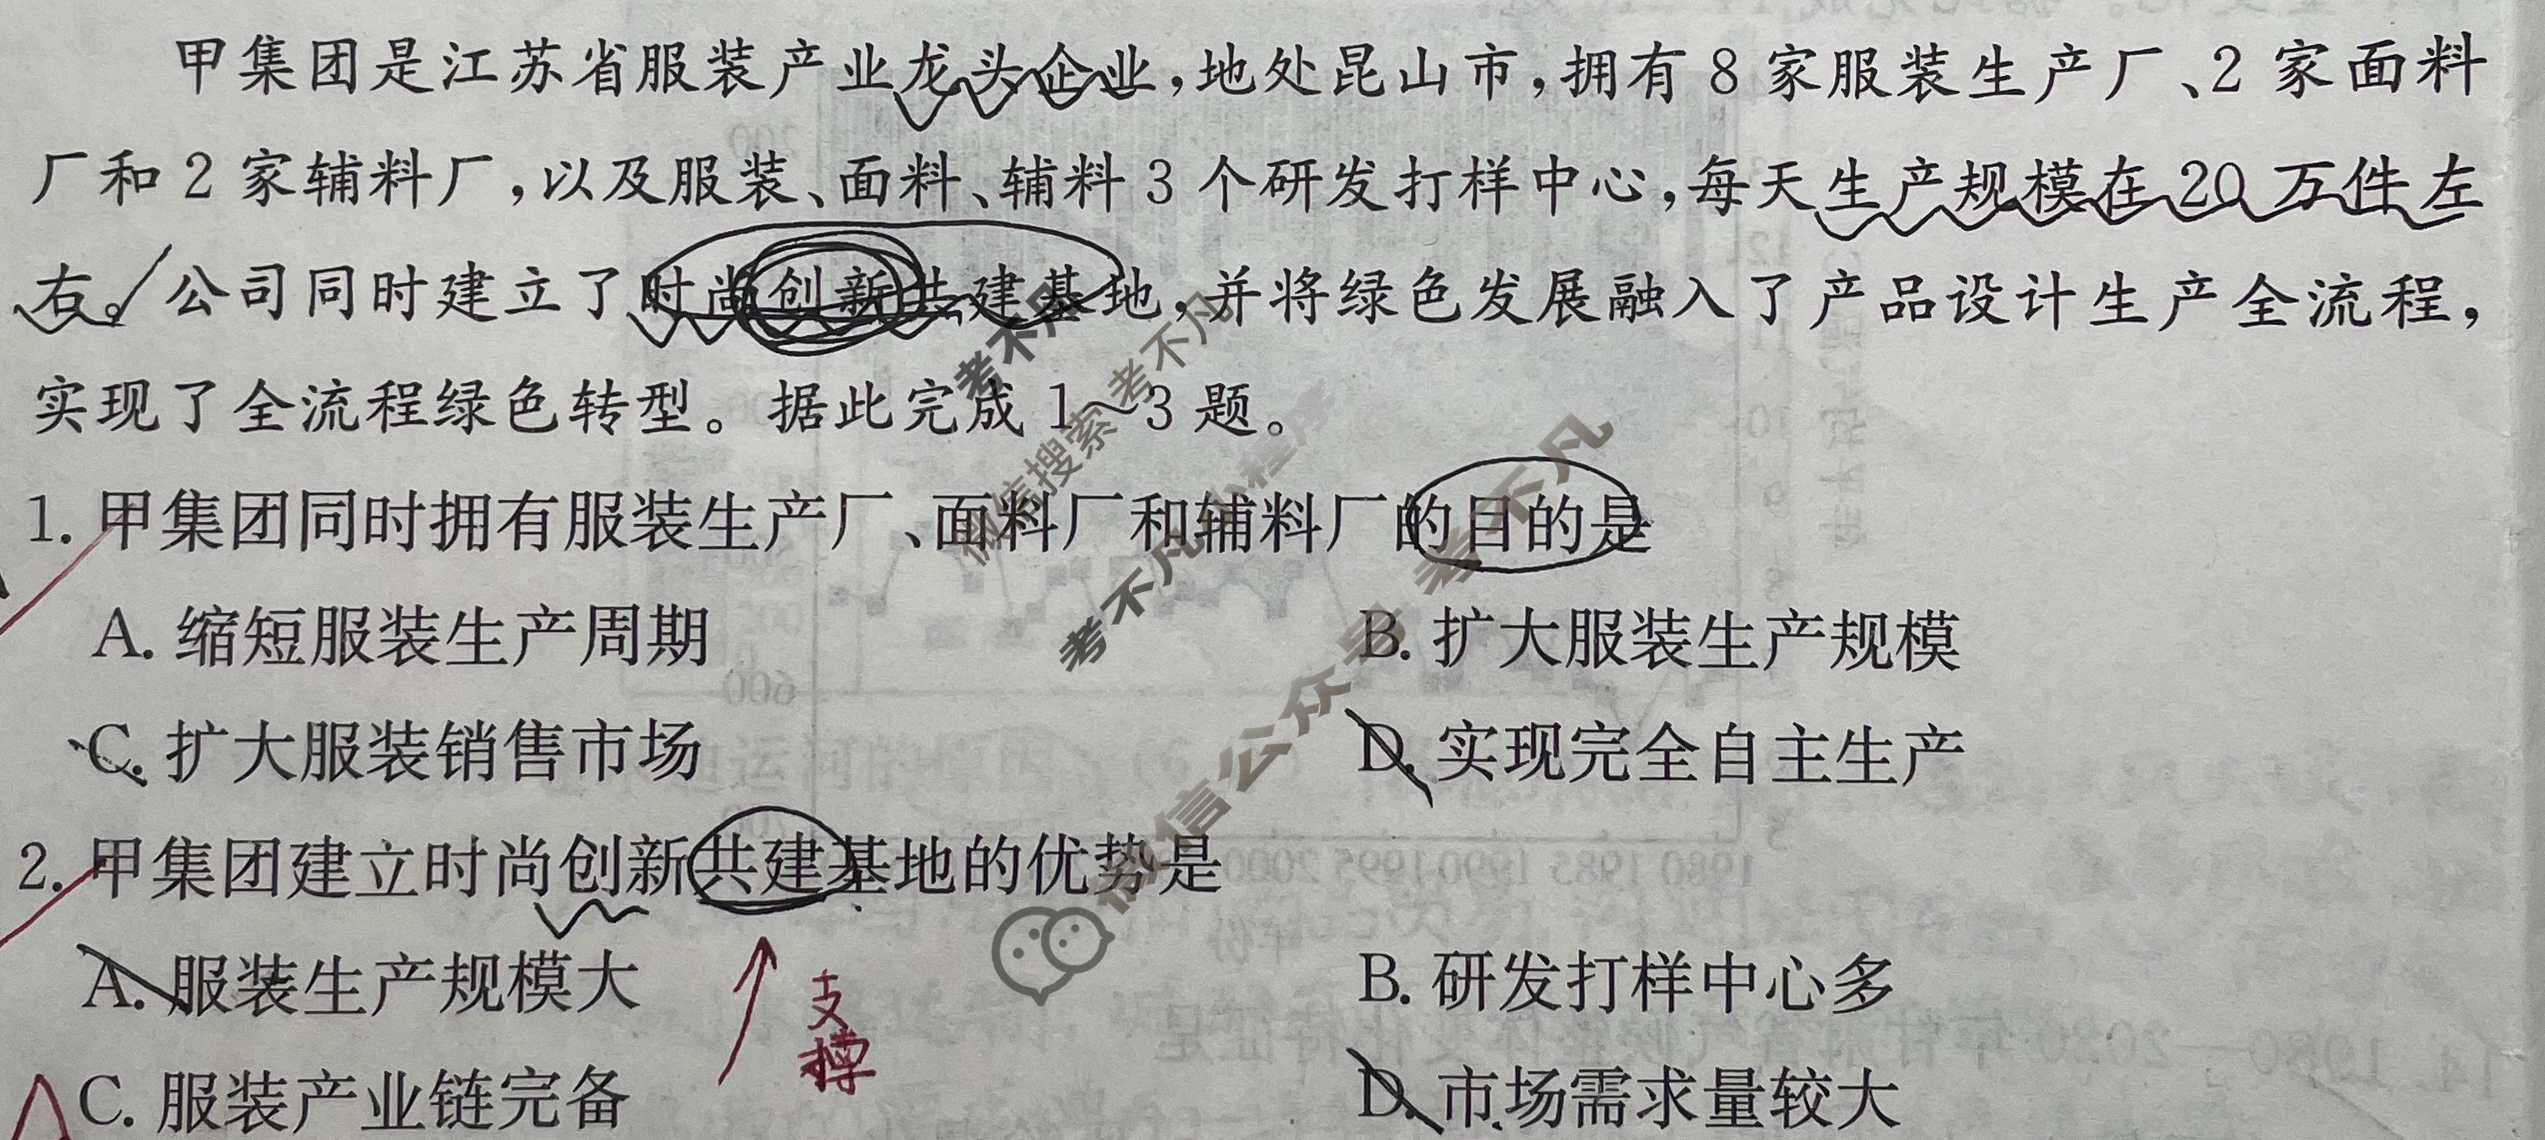 甲集团是江苏省服装产业龙头企业,地处昆山市,拥有 8 家服装生产厂、2 家面料
厂和 2 家辅料厂,以及服装、面料、辅料 3 个研发打样中心,每天生产规模在 20 万件左
右。公司同时建立了时尚创新共建基地,并将绿色发展融入了产品设计生产全流程,
实现了全流程绿色转型。据此完成 1～3 题。
1. 甲集团同时拥有服装生产厂、面料厂和辅料厂的目的是
A. 缩短服装生产周期 B. 扩大服装生产规模
C. 扩大服装销售市场 D. 实现完全自主生产
2. 甲集团建立时尚创新共建基地的优势是
A. 服装生产规模大 B. 研发打样中心多
支撑
C. 服装产业链完备 D. 市场需求量较大
考不凡
微信搜索 考不凡
考不凡 小程序
微信公众号 考不凡